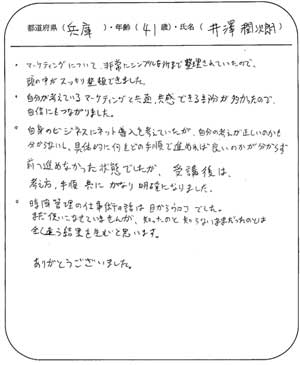 都道府県（兵庫）・年齢（41歳）・氏名（井澤潤次朗）
・マーケティングについて、非常にシンプルな所まで整理されていたので、
頭の中がスッキリ整理できました。
・自分が考えているマーケティングと共通、共感できる部分が多かったので、
自信にもつながりました。
・自身のビジネスにネット導入を考えていたが、自分の考えが正しいのかも
分からないし、具体的に何をどの手順で進めれば良いのかが分からず
前へ進めなかった状態でしたが、受講後は、
考え方、手順 共に かなり明確になりました。
・時間管理の仕事術の話は目からウロコでした。
まだ使いこなせていませんが、知ったのと知らないままだったのとは
全く違う結果を生むと思います。
ありがとうございました。